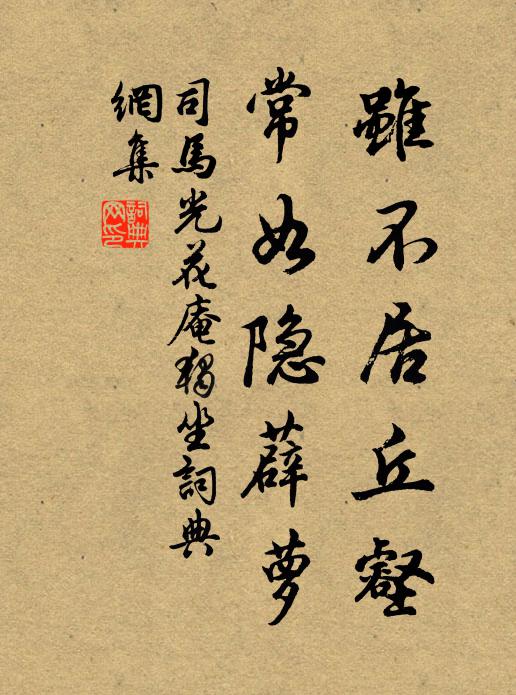 雖不居丘壑
常如隐薜萝
司馬光花庵獨坐詞典
網集
詞典
网印